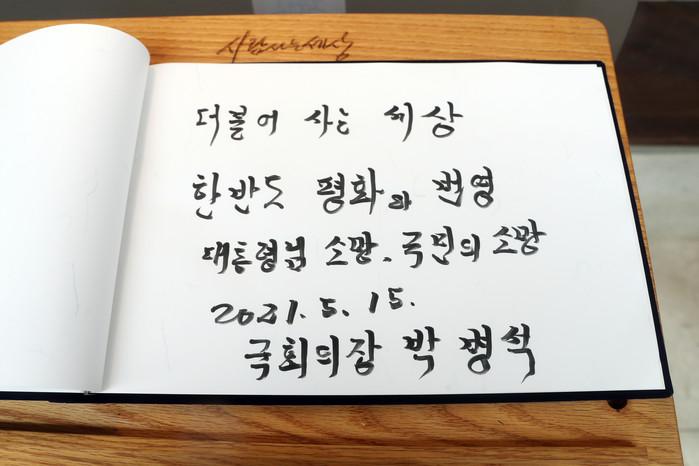 사람사는세상
더불어 사는 세상
한반도 평화와 번영
대통령님 소망. 국민의 소망
2021. 5. 15.
국회의장 박병석